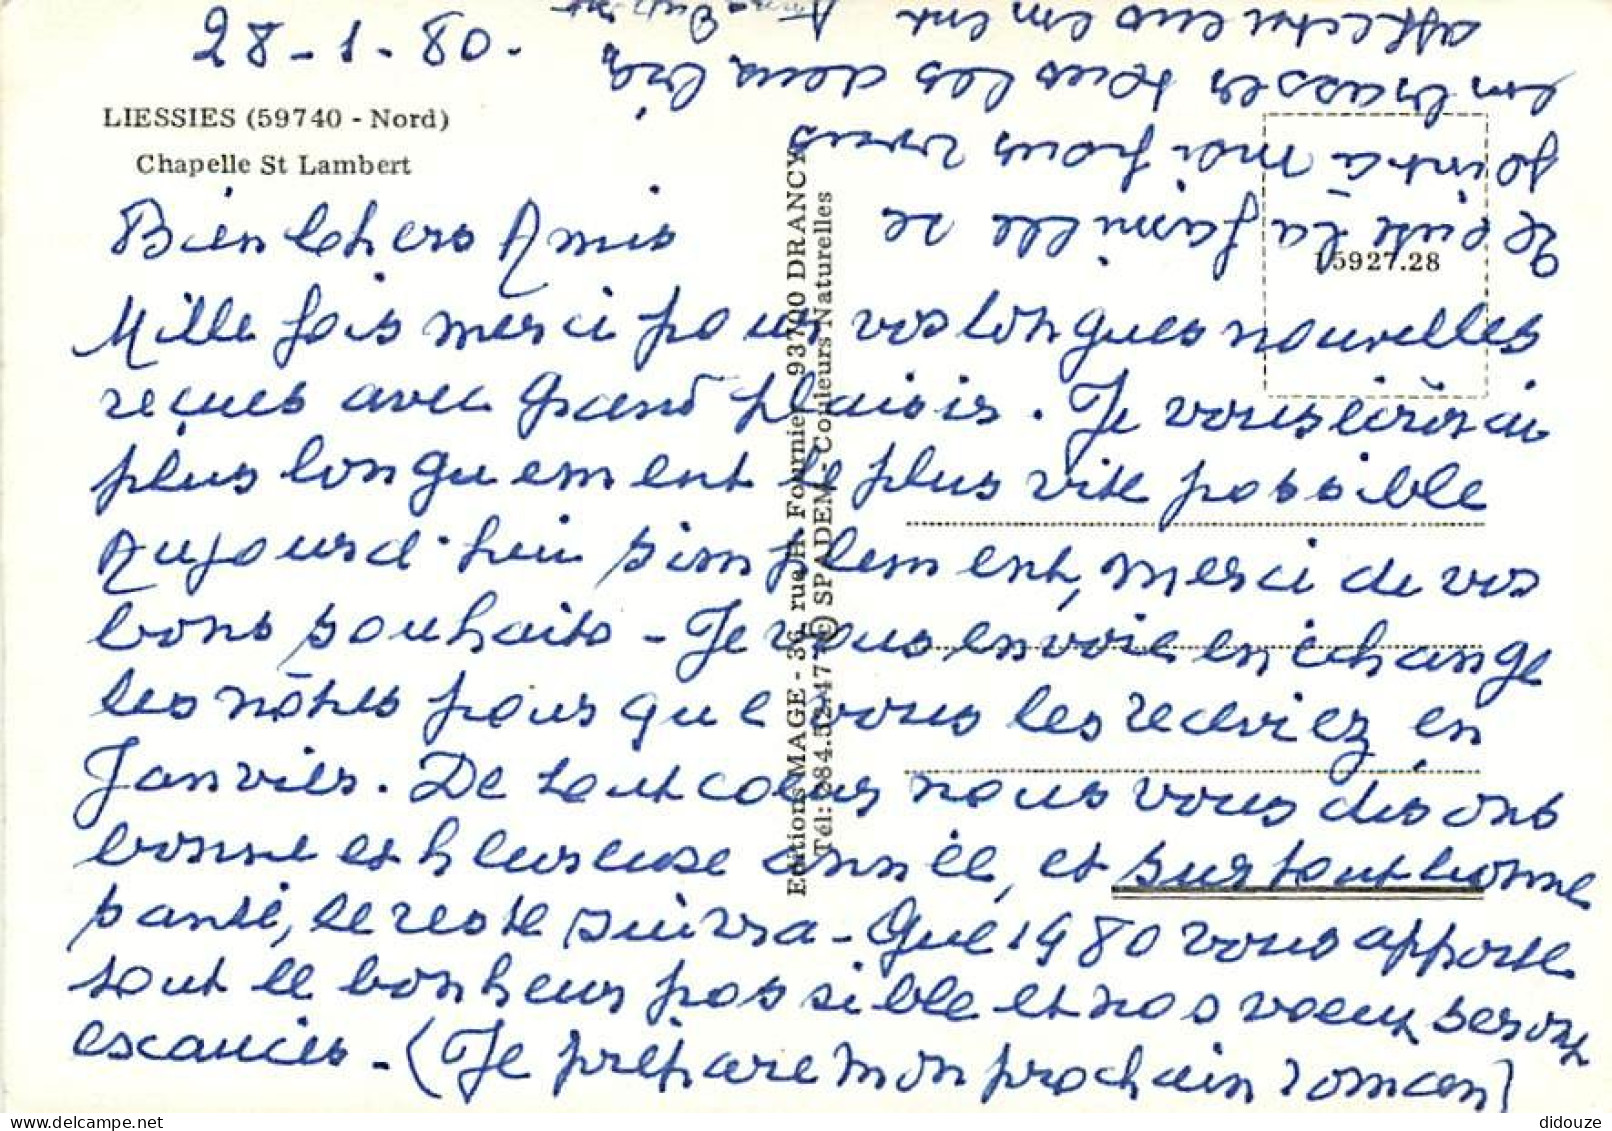 28-1-80.
LIESSIES (59740 - Nord)
Chapelle St Lambert
Bien chers Amis
Mille fois merci pour vos longues nouvelles
reçues avec grand plaisir. Je vous écrirai
plus longuement le plus vite possible
Aujourd'hui simplement, merci de vos
bons souhaits - Je vous envoie en échange
les nôtres pour que vous les receviez en
Janvier. De tout coeur nous vous disons
bonne et heureuse année, et surtout bonne
santé, le reste suivra - Que 1980 vous apporte
tout le bonheur possible et nos voeux seront
exaucés - (Je prépare mon prochain roman)
Toute la famille se
joint à moi pour vous
embrasser tous les deux très
affectueusement
Editions MAGE - 36, rue H. Fournier 93700 DRANCY
Tél: 284.52.47 © SPADEM - Couleurs Naturelles
15927.28
didouze